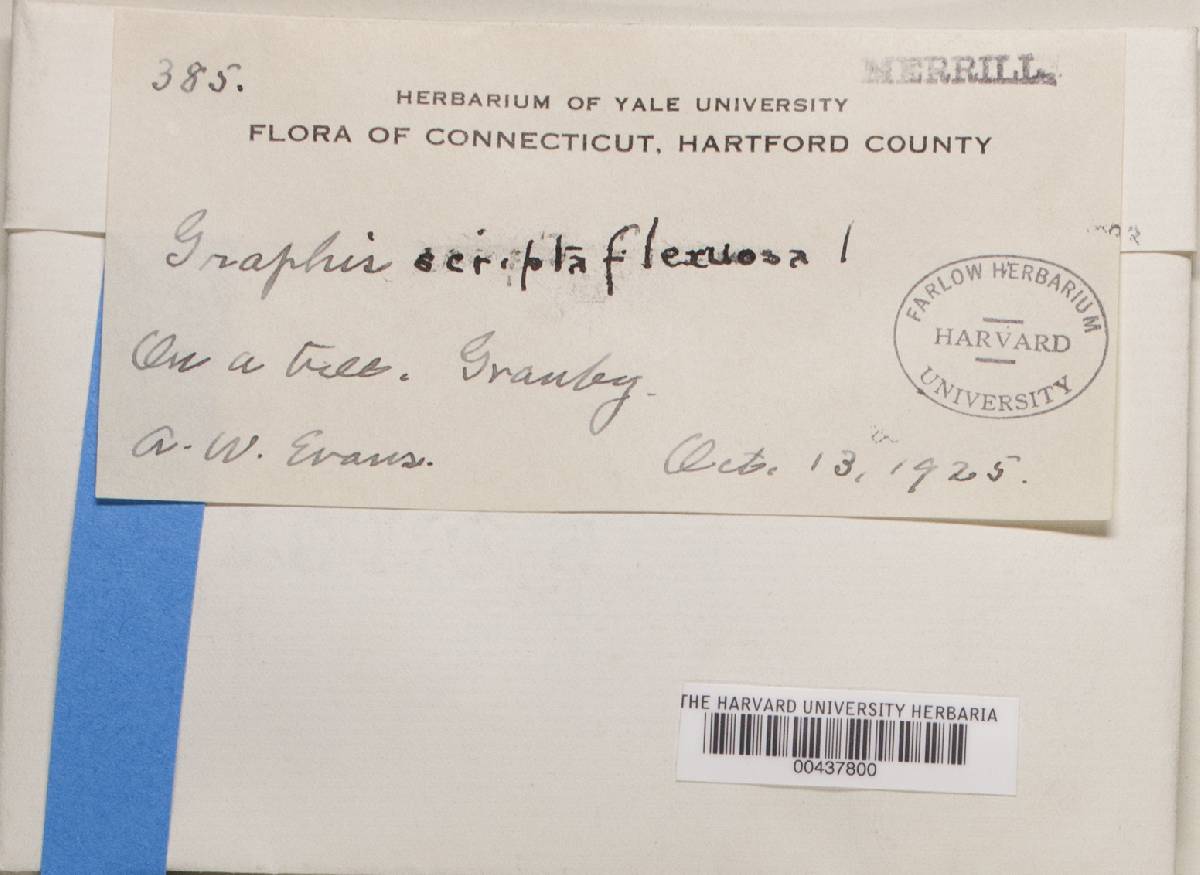 385.
MERRILL.
HERBARIUM OF YALE UNIVERSITY
FLORA OF CONNECTICUT, HARTFORD COUNTY
Graphis scripta flexuosa !
FARLOW HERBARIUM
HARVARD
UNIVERSITY
On a tree. Granby.
A. W. Evans.
Oct. 13, 1925.
THE HARVARD UNIVERSITY HERBARIA
00437800